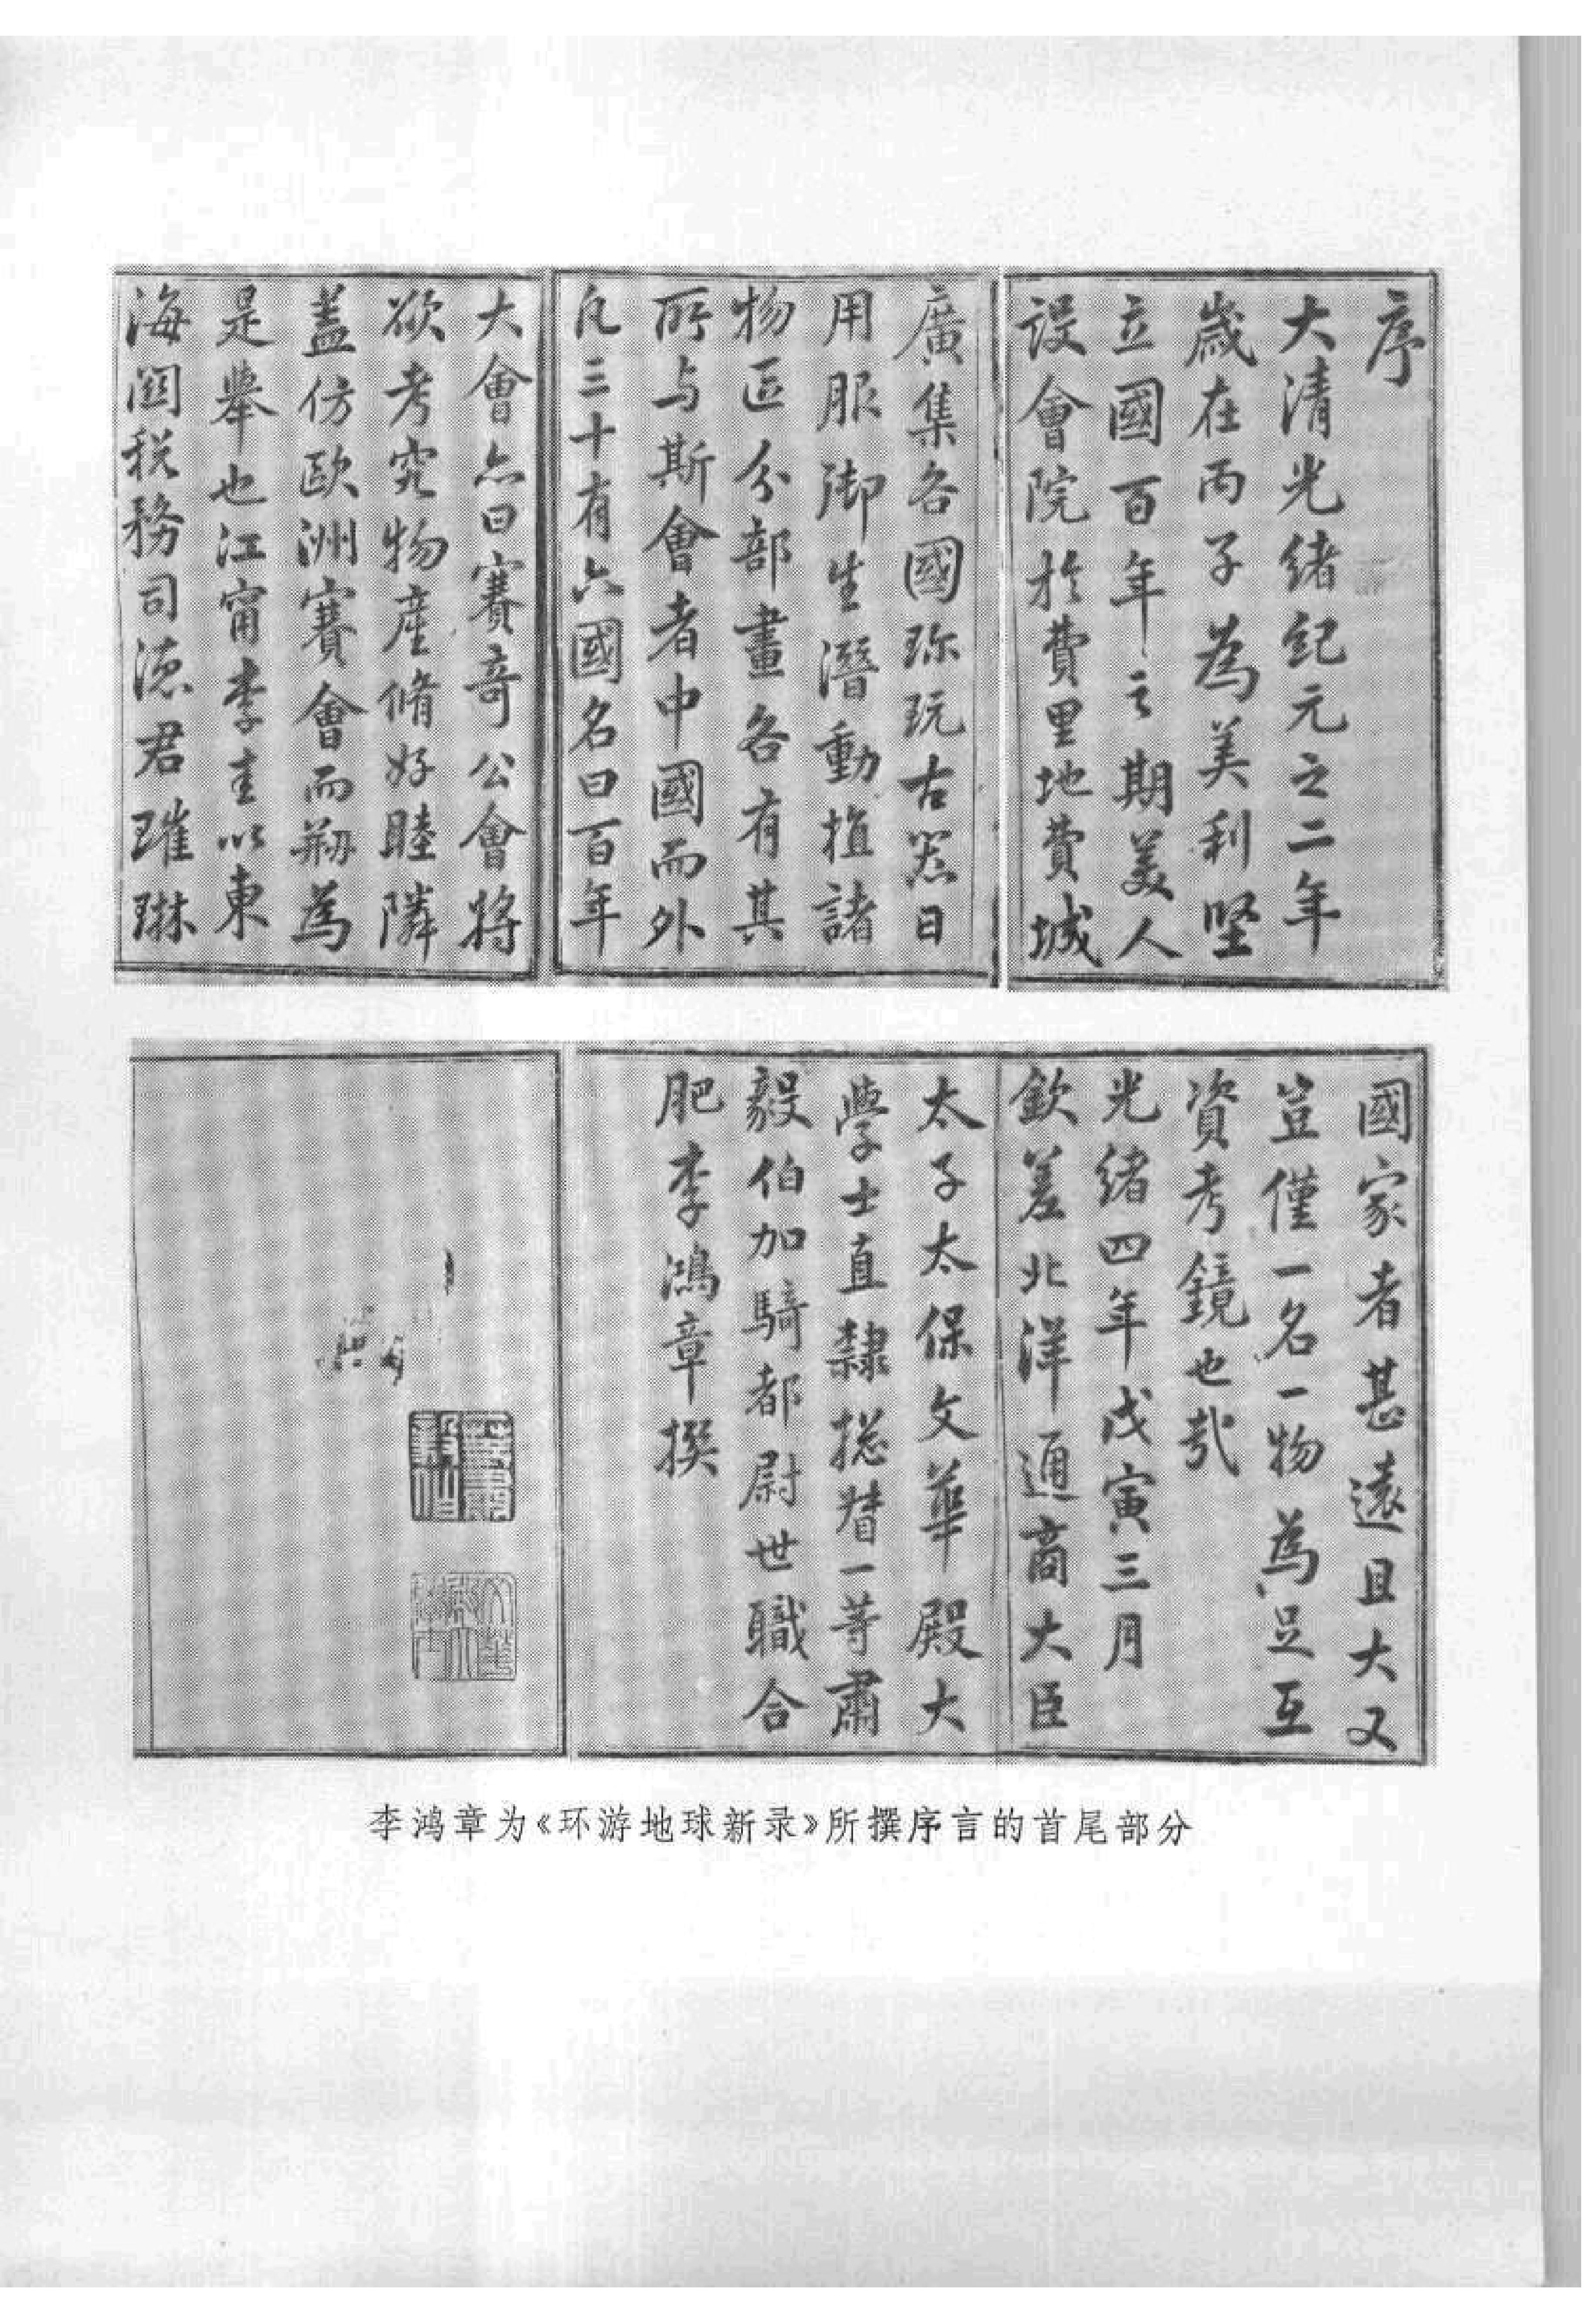 序
大清光绪纪元之二年
歲在丙子為美利堅
立國百年之期美人
設會院於費里地費城
廣集各國珎玩古器日
用服御生潛動植諸
物區分部畫各有其
所与斯會者中國而外
凡三十有六國名曰百年
大會亦曰賽奇公會將
欲考究物產脩好睦隣
蓋仿歐洲賽會而剏為
是舉也江甯李圭以東
海關税務司德君璀琳
國家者甚遠且大又
豈僅一名一物為足互
資考鏡也哉
光緒四年戊寅三月
欽差北洋通商大臣
太子太保文華殿大
學士直隸總督一等肅
毅伯加騎都尉世職合
肥李鴻章撰
李鸿章为《环游地球新录》所撰序言的首尾部分